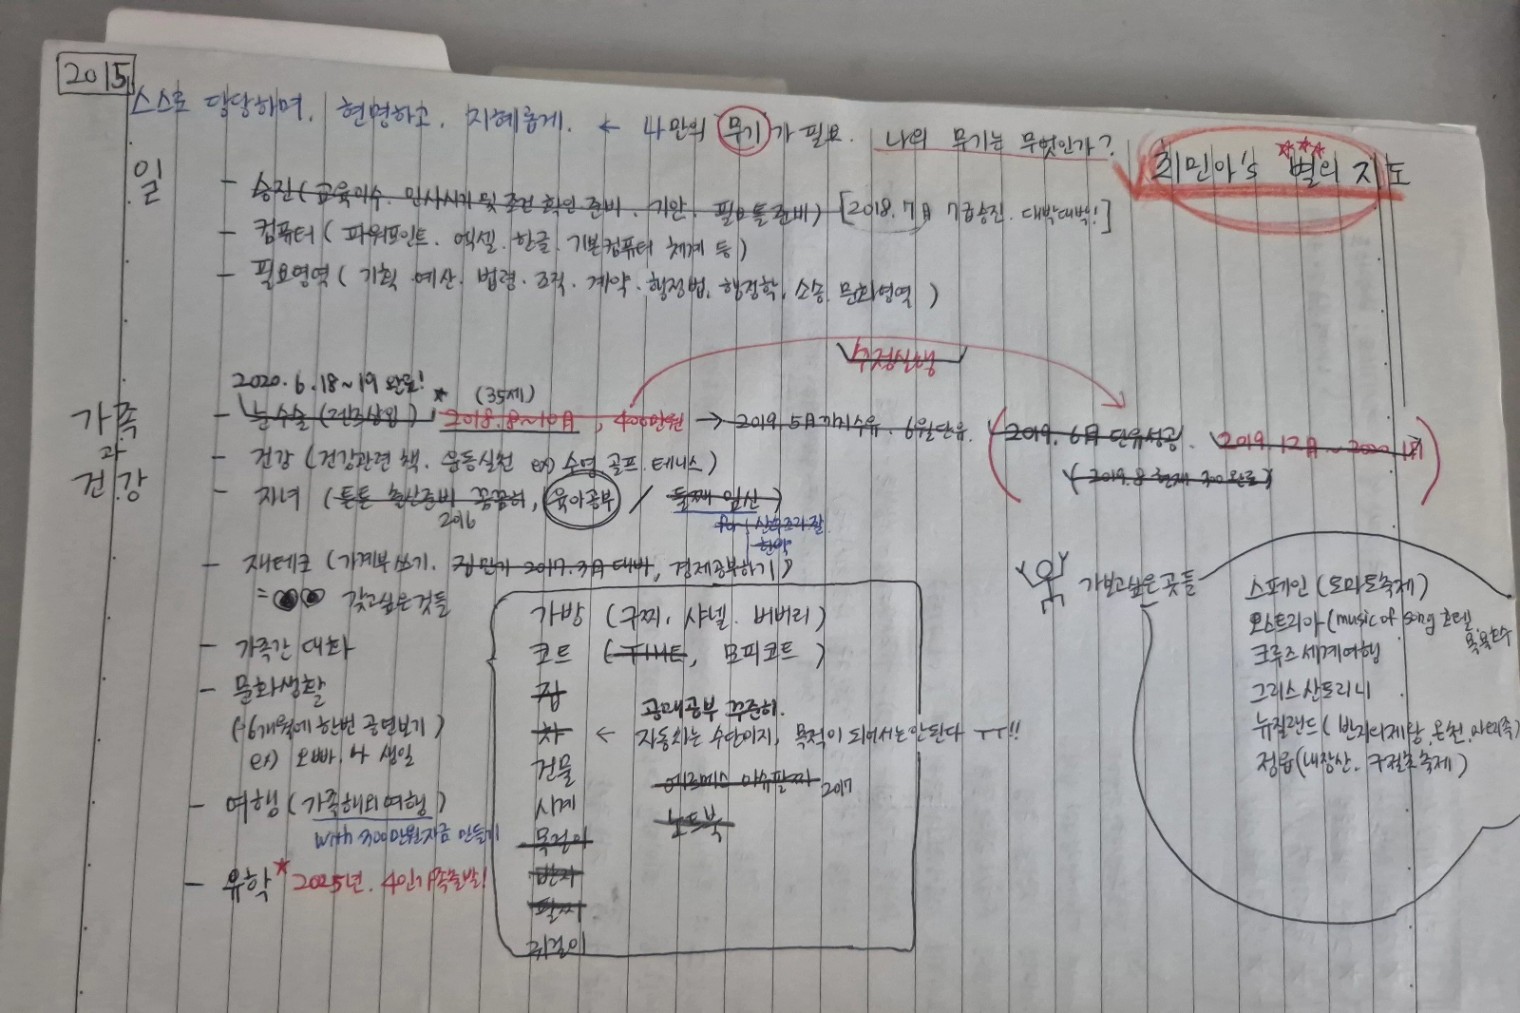 2015
스스로 당당하며, 현명하고, 지혜롭게. ← 나만의 무기가 필요. 나의 무기는 무엇인가?
최민아's 별의 지도
일
- 승진 (교육이수. 인사시기 및 조건 확인 준비. 기안. 필요틀준비) [2018. 7月 7급승진. 대박대박!]
- 컴퓨터 (파워포인트. 엑셀. 한글. 기본컴퓨터 체계 등)
- 필요영역 (기획. 예산. 법령. 조직. 계약. 행정법. 행정학. 소송. 문화영역)
수정실행
가족
과
건강
2020. 6. 18~19 완료!
(35세)
- 눈수술 (렌즈삽입) 2018. 8~10月, 400만원 → 2019. 5月까지수유. 6월단유. (2019. 6月 단유성공. 2019. 12月~2020. 1月)
(2019. 8 현재 300완료)
- 건강 (건강관련 책. 운동실천 ex) 수영 골프. 테니스)
- 자녀 (튼튼 출산준비 꼼꼼히, 육아공부 / 둘째 임신)
2016
산후조리 잘
한약
- 재테크 (가계부쓰기. 집만기 2017. 3月 대비, 경제공부하기)
= 갖고싶은것들
- 가족간 대화
- 문화생활
(6개월에 한번 공연보기)
ex) 오빠. 나 생일
- 여행 (가족해외여행)
with 300만원자금 만들기
- 유학* 2025년. 4인가족출발!
가방 (구찌, 샤넬. 버버리)
코트 (TIME, 모피코트)
집
공매공부 꾸준히.
차 ← 자동차는 수단이지, 목적이 되어서는안된다 ㅜㅜ!!
건물
에르메스 이슈팔찌 2017
시계
노트북
목걸이
반지
팔찌
귀걸이
가보고싶은 곳들
스페인 (토마토축제)
오스트리아 (music of song 호텔.
크루즈 세계여행
그리스 산토리니
뉴질랜드 (반지의제왕. 온천. 마오리족)
정읍 (내장산. 구절초축제)